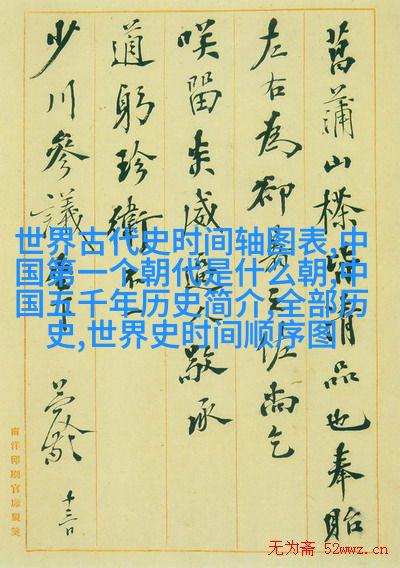 菖蒲山樣精品也奉貽
左右為卻之佐尚乞
咲留敬承
道躬珍衛不一
少川參議
十三日
南洋印刷官廠製箋
世界古代史时间轴图表,中
国第一个朝代是什么朝,中
国五千年历史简介 全部历
史,世界史时间顺序图
无为斋 52wwz.cn